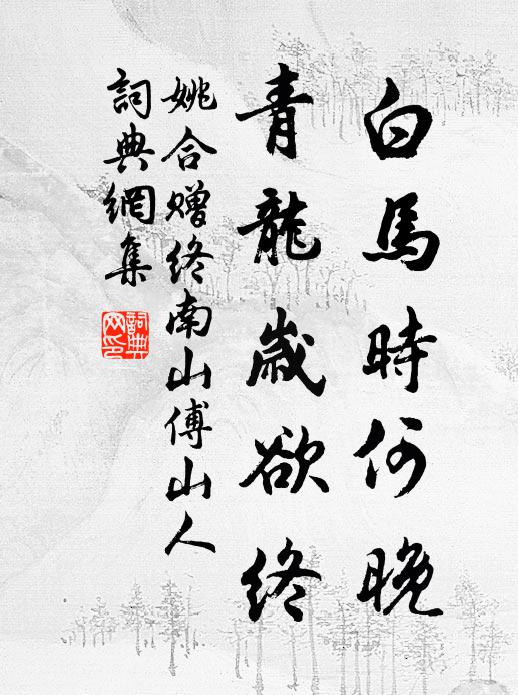 白馬時何晚
青龍歲欲終
姚合赠终南山傅山人
詞典網集
詞典
网印